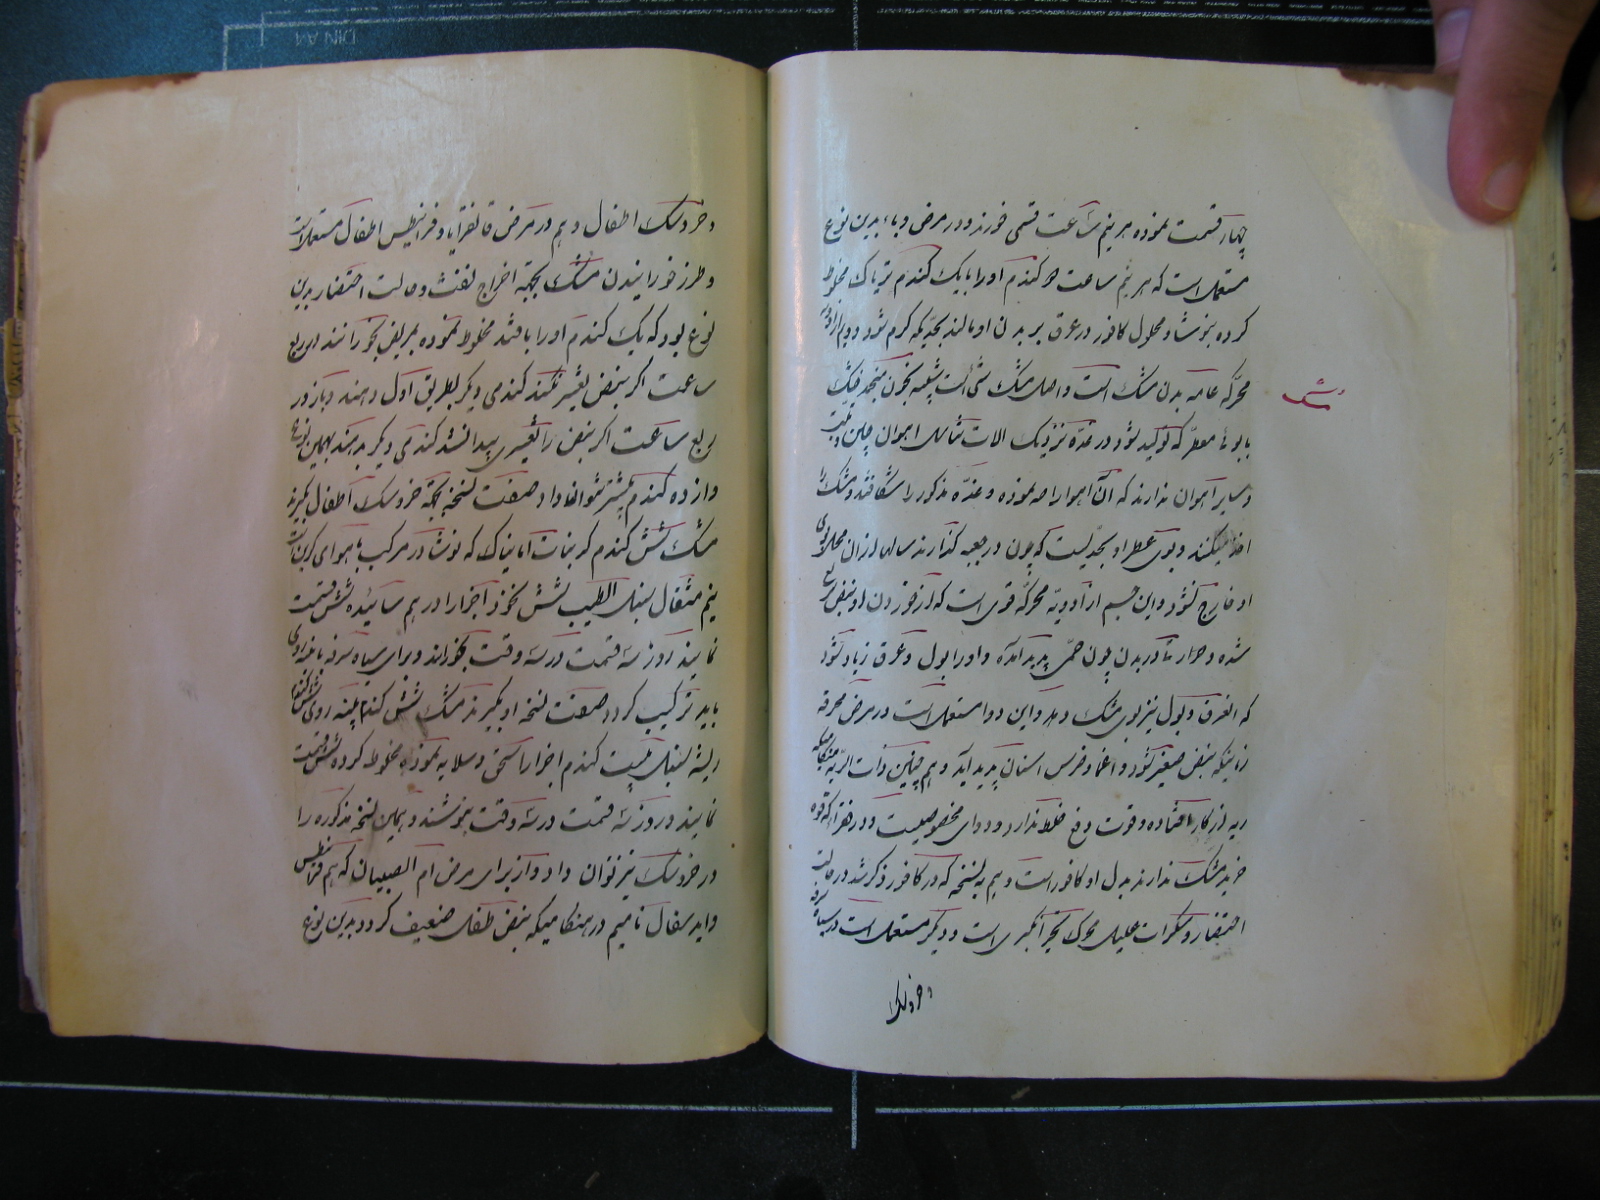 چهار قسمت نموده هر نیم ساعت قسمی خورند و در مرض وباء بدین نوع
مستعمل است که هر نیم ساعت کندم او را با یک کندم تریاک مخلوط
کرده بنوشاند و محلول کافور در عرق بر بدن او مالند بحدیکه کرم شود دویم از ادویه
محرکه عامه بدن مشک است و اصل مشک شئ است شبیه بخون منجمد خشک
با بوئی معطر که تولید شود در غده نزدیک الات تناسل اهوان چین و تبت
و سایر آهوان ندارند که آن اهو را صید نموده و غده مذکور را شکافند و مشک را
اخذ میکنند و بوی عطر او بحدیست که چون در جعبه کذارند سالها از آن محل بوی
او خارج نشود و این جسم از ادویه محرکه قوی است که از خوردن او نبض سریع
شده و حرارت در بدن چون حمی پدید آمده و ادرار بول و عرق زیاد شود
که العرق و بول نیز بوی مشک دهد و این دوا مستعمل است در مرض محرقه
زمانیکه نبض صغیر شود و اغما و فرس اسنان پدید آید و هم چنین ذات الریه هنکامیکه
ریه از کار افتاده و قوت دفع خلط ندارد و دوای مخصوصیست و در فقرا که قوه
خرید مشک ندارند بدل او کافور است و هم به نسخه که در کافور ذکر شد در حالت
احتضار و سکرات علیل محرک بخیر آنکبری است و دیکر مستعمل است در سیاه سرفه
و خروسک
مشک
و خروسک اطفال و هم در مرض فانفرایا و فرانیطیس اطفال مستعملست
و طرز خورانیدن مشک بجهة اخراج نفث و حالت احتضار بدین
نوع بود که یک کندم او را با قند مخلوط نموده بمریض بخورانند در ربع
ساعت اکر نبض تغییر نکند کندمی دیکر بطریق اول دهند و باز در
ربع ساعت اکر نبض را تغییری پیدا نشد کندمی دیکر بدهند بهمین نوع
و از ده کندم بیشتر نتوان داد صفت نسخه بجهة خروسک اطفال بکیرند
مشک شش کندم کربنات امانیاک که نوشادر مرکب با هوای کربن است
نیم مثقال سنبل الطیب شش نخود اجزا را در هم سائیده شش قسمت
نمایند روز سه قسمت در سه وقت بخوراند و برای سیاه سرفه با پنبه روی
باید ترکیب کرد صفت نسخه او بکیرند مشک شش کندم پنبه روی شش کندم
ریشه سنبل بیست کندم اجزا را سحق و صلایه نموده مخلوط کرده شش قسمت
نمایند و روز سه قسمت در سه وقت بنوشند و همین نسخه مذکوره را
در خروسک نیز توان داد و از برای مرض ام الصبیان که هم فرانیطس
و اید سفال نامیم در هنکامیکه نبض طفل ضعیف کردد بدین نوع